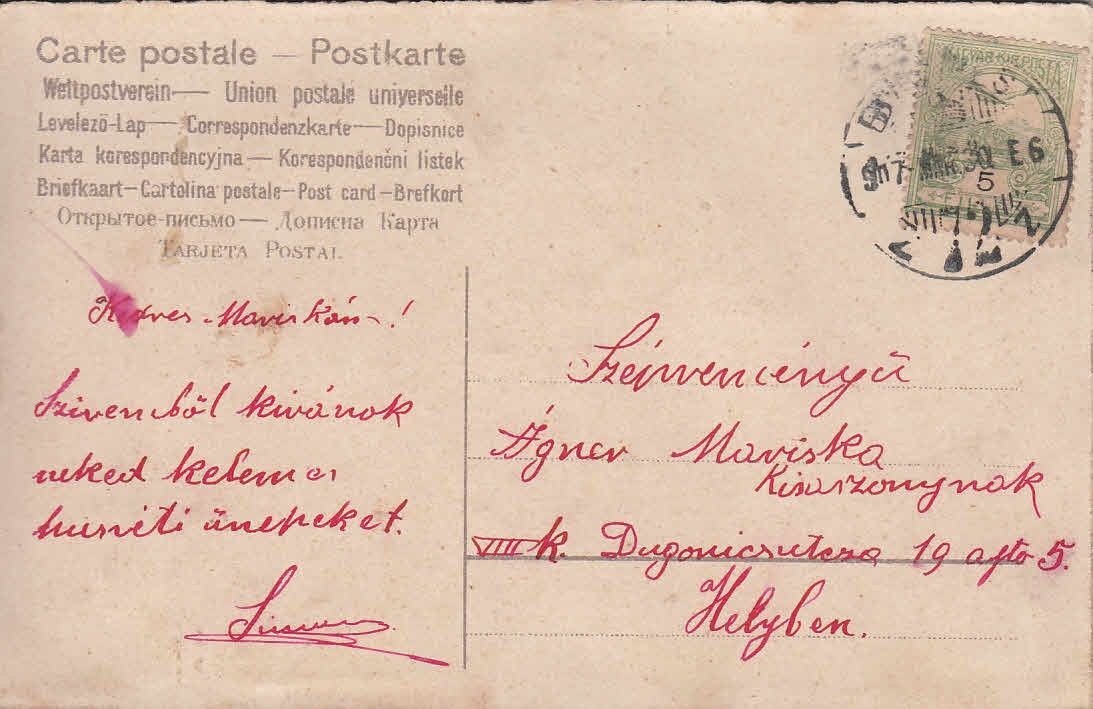 Carte postale — Postkarte
Weltpostverein — Union postale universelle
Levelező-Lap — Correspondenzkarte — Dopisnice
Karta korespondencyjna — Korespondenčni listek
Briefkaart — Cartolina postale — Post card — Brefkort
Открытое-письмо — Дописна Карта
TARJETA POSTAL
MAGYAR KIR. POSTA
907 MÁR. 30 E6
5
Kedves Mariskám!
Szivemből kivánok
neked kelemes
husvéti ünepeket.
Széjrveményü
Ágner Mariska
Kisaszonynak
VIII k. Dugonicsutcza 19 ajto 5.
Helyben.